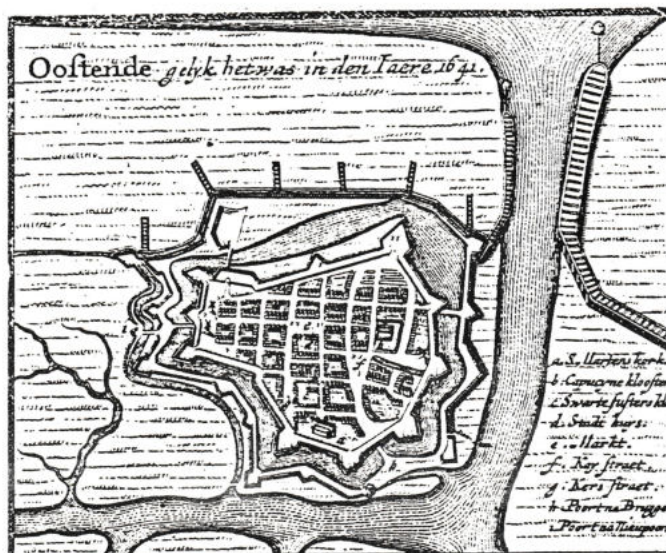 Oostende gelyk het was in den Iaere 1641.
a. S. kerk
b. Capucyne klooste
c. Swarte susters kl
d. Stadt huis.
e. Markt.
f. Kay straet.
g. Kers straet.
h. Poort na Brugge
i. Poort na Nieupoor